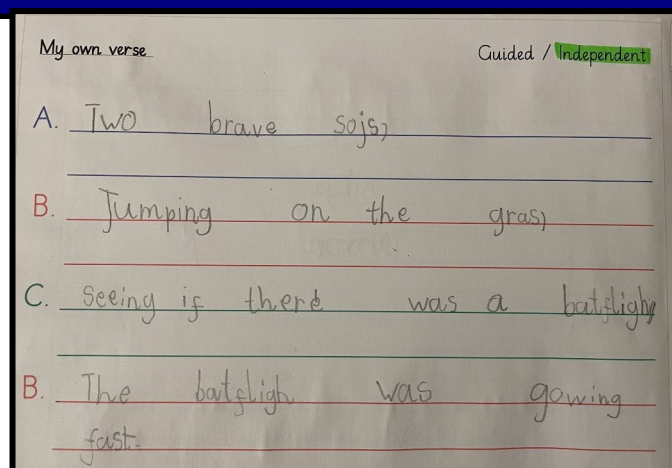 My own verse
Guided / Independent
A. Two brave sojs,
B. Jumping on the gras,
C. Seeing if there was a batfligh
B. The batfligh was gowing
fast.